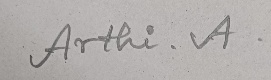 Arthi. A.